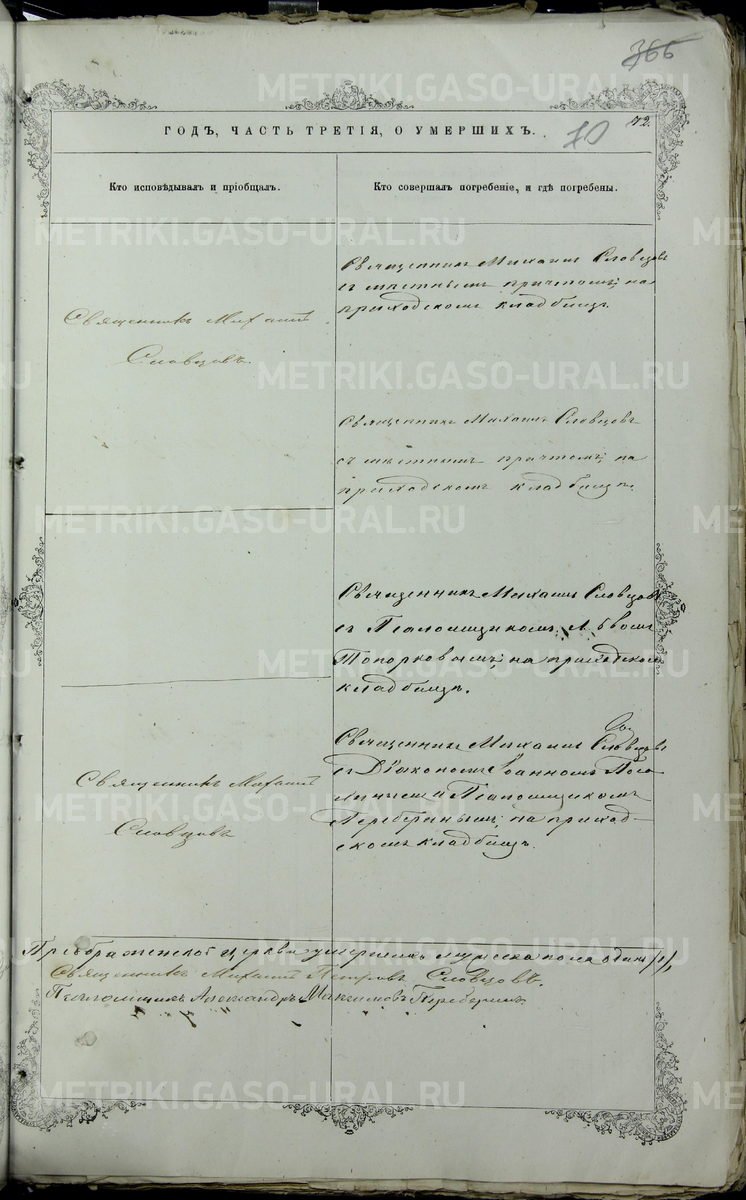 366
ГОДЪ, ЧАСТЬ ТРЕТІЯ, О УМЕРШИХЪ.
10
72.
Кто исповѣдывалъ и пріобщалъ.
Кто совершалъ погребеніе, и гдѣ погребены.
Священникъ Михаилъ
Словцовъ.
Священникъ Михаилъ Словцовъ
съ мѣстнымъ причтомъ; на
приходскомъ кладбищѣ
Священникъ Михаилъ Словцовъ
съ мѣстнымъ причтомъ; на
приходскомъ кладбищѣ.
Священникъ Михаилъ Словцовъ
съ Псаломщикомъ Львомъ
Топорковымъ; на приходскомъ
кладбищѣ.
Священникъ Михаилъ
Словцовъ
Священникъ Михаилъ Словцовъ
съ Діакономъ Іоанномъ
и Псаломщикомъ
на приход-
скомъ кладбищѣ.
Преображенской церкви умершихъ мужеска пола одинъ /1/,
Священникъ Михаилъ Петровъ Словцовъ.
Псаломщикъ Александръ Максимовъ
METRIKI.GASO-URAL.RU